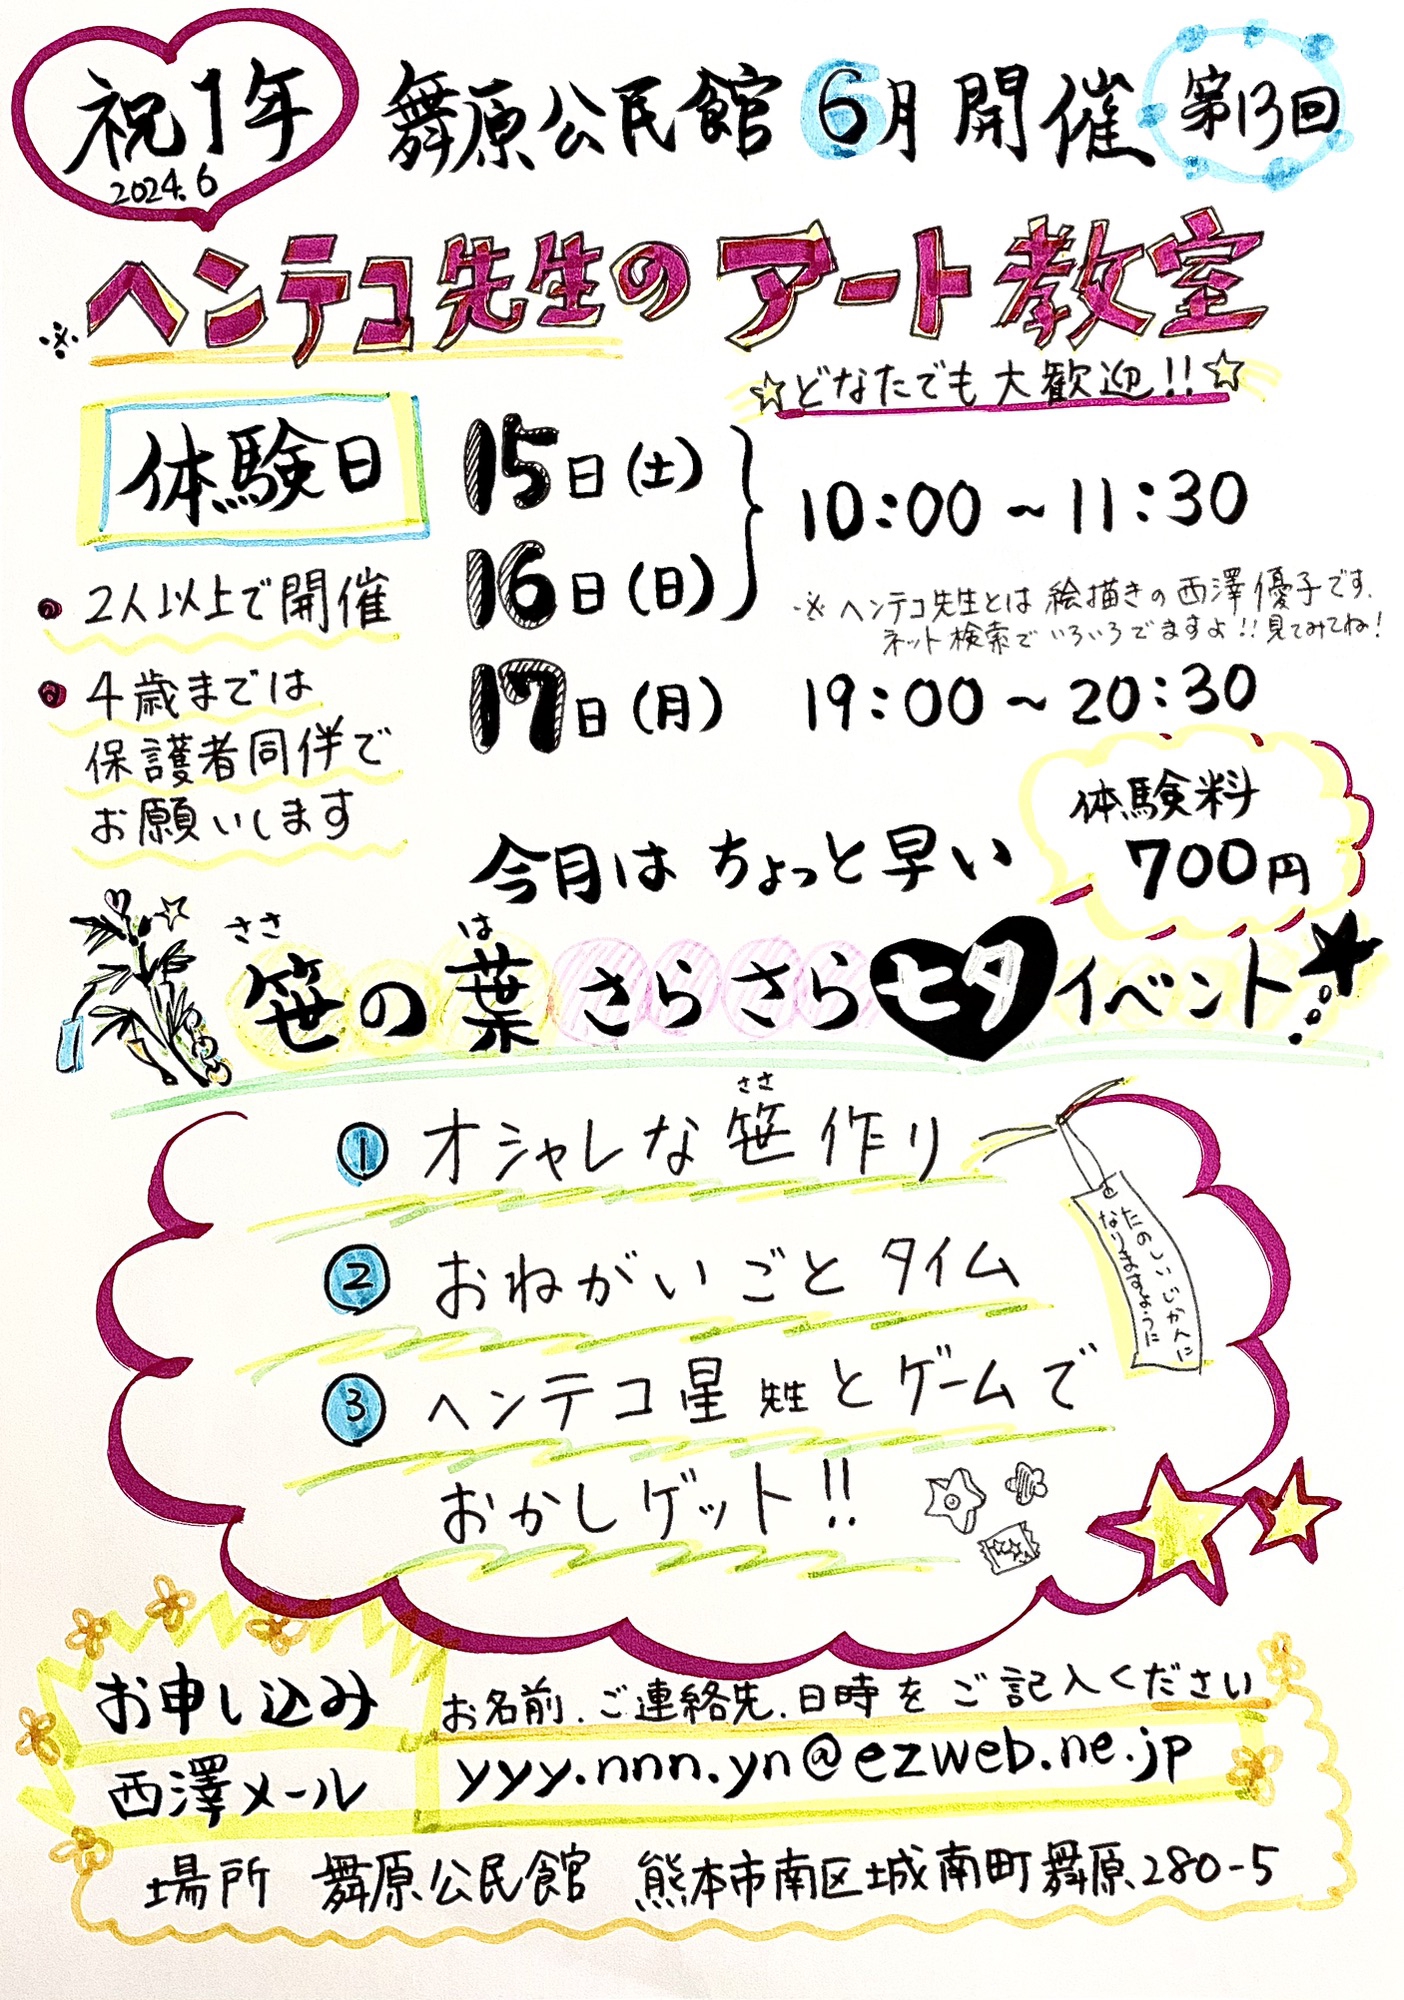 祝1年
2024.6
舞原公民館 6月 開催 第13回
※ヘンテコ先生のアート教室
☆どなたでも大歓迎!!☆
体験日
15日(土)
16日(日)
10:00~11:30
※ヘンテコ先生とは絵描きの西澤優子です.
ネット検索でいろいろでますよ!!見てみてね!
17日(月) 19:00~20:30
2人以上で開催
4歳までは
保護者同伴で
お願いします
体験料
700円
今月はちょっと早い
ささ は
笹の葉さらさら七夕イベント
ささ
① オシャレな笹作り
② おねがいごとタイム
③ ヘンテコ星先生とゲームで
おかしゲット!!
なりますように
お申し込み
お名前.ご連絡先.日時をご記入ください
西澤メール
yyy.nnn.yn@ezweb.ne.jp
場所 舞原公民館 熊本市南区城南町舞原280-5